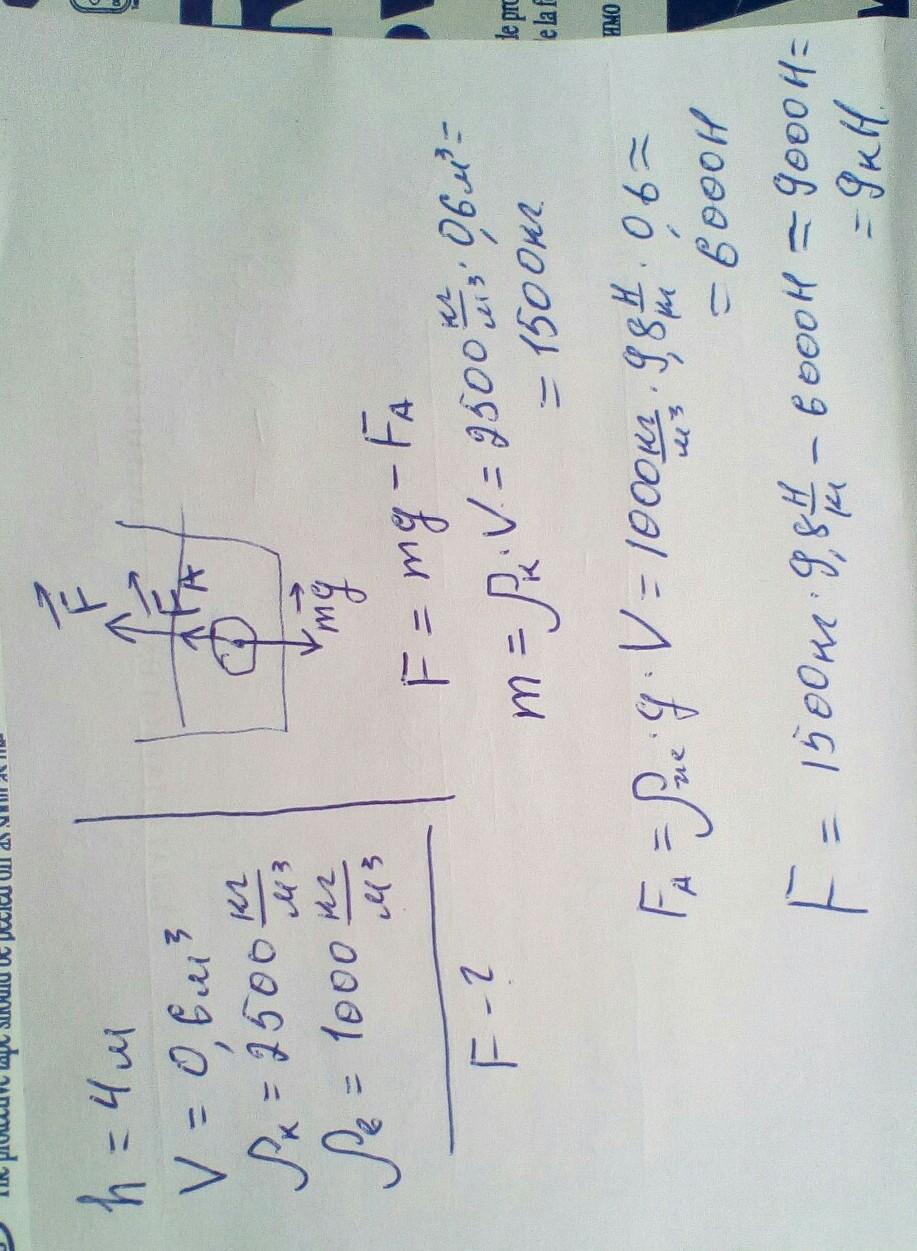 h = 4м
V = 0,6м³
ρк = 2500 кг/м³
ρв = 1000 кг/м³
F - ?
F
FA
mg
F = mg - FA
m = ρк · V = 2500 кг/м³ · 0,6м³ =
= 1500кг
FA = ρж · g · V = 1000 кг/м³ · 9,8 Н/кг · 0,6 ≈
= 6000Н
F = 1500кг · 9,8 Н/кг - 6000Н ≈ 9000Н =
= 9кН.